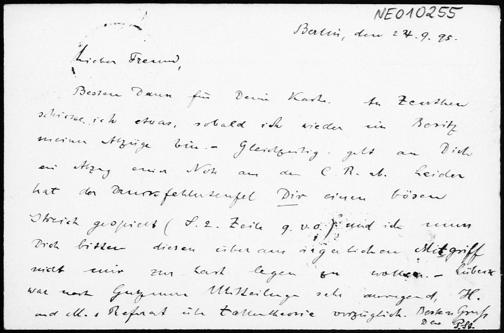 NE010255
Berlin, den 24.9.95.
Lieber Freund,
Besten Dank für Deine Karte. An Zeuthen
schicke ich etwas, sobald ich wieder im Besitz
meiner Abzüge bin. – Gleichzeitig geht an Dich
ein Abzug einer Note aus den C. R. ab. Leider
hat der Druckfehlerteufel Dir einen bösen
Streich gespielt (S. 2. Zeile 9. v. o.) und ich muss
Dich bitten diesen überaus ärgerlichen Mißgriff
nicht mir zur Last legen zu wollen. – Lübeck
war nach Mitteilung sehr anregend, H.
und M.s Referat über Zahlentheorie vorzüglich. Besten Gruss
Dein